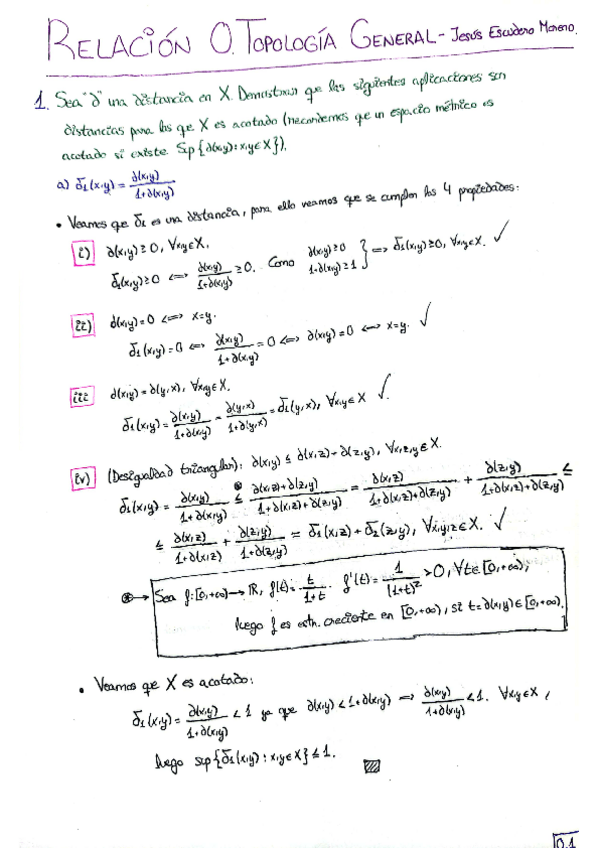 RELACIÓN 0. TOPOLOGÍA GENERAL - Jesús Escudero Moreno.
1. Sea "d" una distancia en X. Demostrar que las siguientes aplicaciones son
distancias para las que X es acotado (recordemos que un espacio métrico es
acotado si existe Sup{d(x,y): x,y∈X}).
a) δ₁(x,y) = d(x,y)/(1+d(x,y))
• Veamos que δ₁ es una distancia, para ello veamos que se cumplen las 4 propiedades:
i) d(x,y) ≥ 0, ∀x,y∈X.
δ₁(x,y) ≥ 0 <=> d(x,y)/(1+d(x,y)) ≥ 0. Como d(x,y) ≥ 0, 1+d(x,y) ≥ 1 } => δ₁(x,y) ≥ 0, ∀x,y∈X. ✓
ii) d(x,y) = 0 <=> x=y.
δ₁(x,y) = 0 <=> d(x,y)/(1+d(x,y)) = 0 <=> d(x,y) = 0 <=> x=y. ✓
iii d(x,y) = d(y,x), ∀x,y∈X.
δ₁(x,y) = d(x,y)/(1+d(x,y)) = d(y,x)/(1+d(y,x)) = δ₁(y,x), ∀x,y∈X ✓.
iv) (Desigualdad triangular): d(x,y) ≤ d(x,z)+d(z,y), ∀x,z,y∈X.
δ₁(x,y) = d(x,y)/(1+d(x,y)) ≤ d(x,z)+d(z,y)/(1+d(x,z)+d(z,y)) = d(x,z)/(1+d(x,z)+d(z,y)) + d(z,y)/(1+d(x,z)+d(z,y)) ≤
≤ d(x,z)/(1+d(x,z)) + d(z,y)/(1+d(z,y)) = δ₁(x,z) + δ₂(z,y), ∀x,y,z∈X. ✓
⊛→ Sea f:[0,+∞)→ℝ, f(t) = t/(1+t). f'(t) = 1/(1+t)² > 0, ∀t∈[0,+∞),
luego f es estr. creciente en [0,+∞), si t=d(x,y)∈[0,+∞).
• Veamos que X es acotado:
δ₁(x,y) = d(x,y)/(1+d(x,y)) < 1 ya que d(x,y) < 1+d(x,y) => d(x,y)/(1+d(x,y)) < 1. ∀x,y∈X,
luego sup{δ₁(x,y): x,y∈X} ≤ 1.
0.1